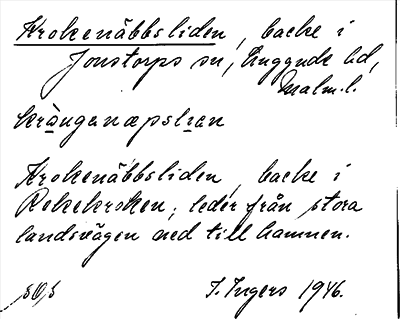 Krokenäbbsliden, backe i
Jonstorps sn, Luggude hd,
Malm.l.
krångenæpslian
Krokenäbbsliden, backe i
Rekekroken; leder från stora
landsvägen ned till hamnen.
I. Ingers 1946.